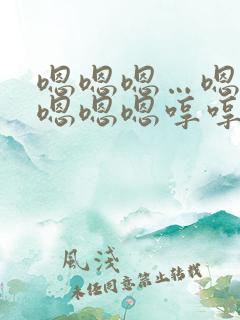 嗯嗯嗯…嗯
嗯嗯嗯哼哼
風淺
未經同意禁止轉載